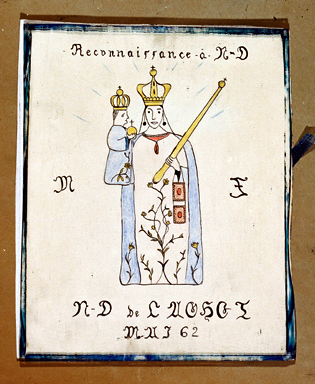 Reconnaissance à N-D
M
N-D de LAGHET
MAI 62